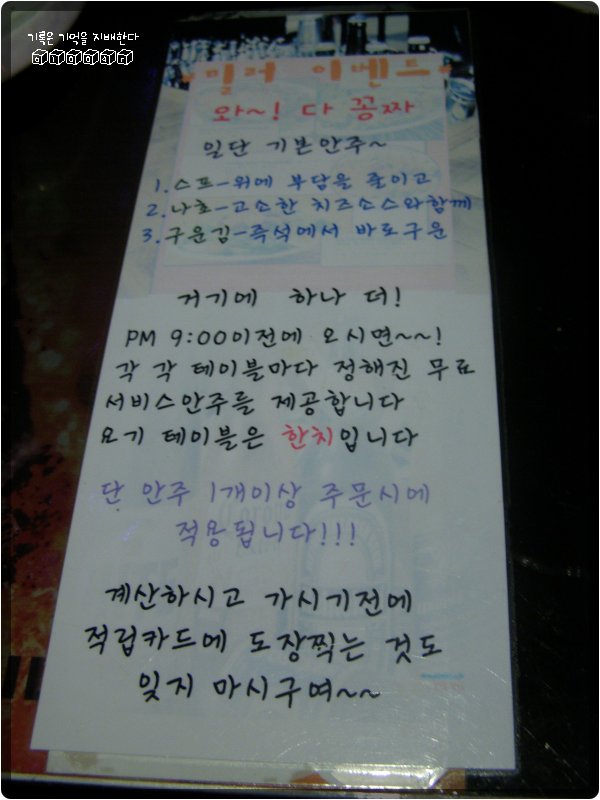 기록은 기억을 지배한다
밀러 이벤트
와~! 다 꽁짜
일단 기본안주~
1. 스프-위에 부담을 줄이고
2. 나쵸-고소한 치즈소스와함께
3. 구운김-즉석에서 바로구운
거기에 하나 더!
PM 9:00이전에 오시면~~!
각 각 테이블마다 정해진 무료
서비스안주를 제공합니다
요기 테이블은 한치입니다
단 안주 1개이상 주문시에
적용됩니다!!!
계산하시고 가시기전에
적립카드에 도장찍는 것도
잊지 마시구여~~